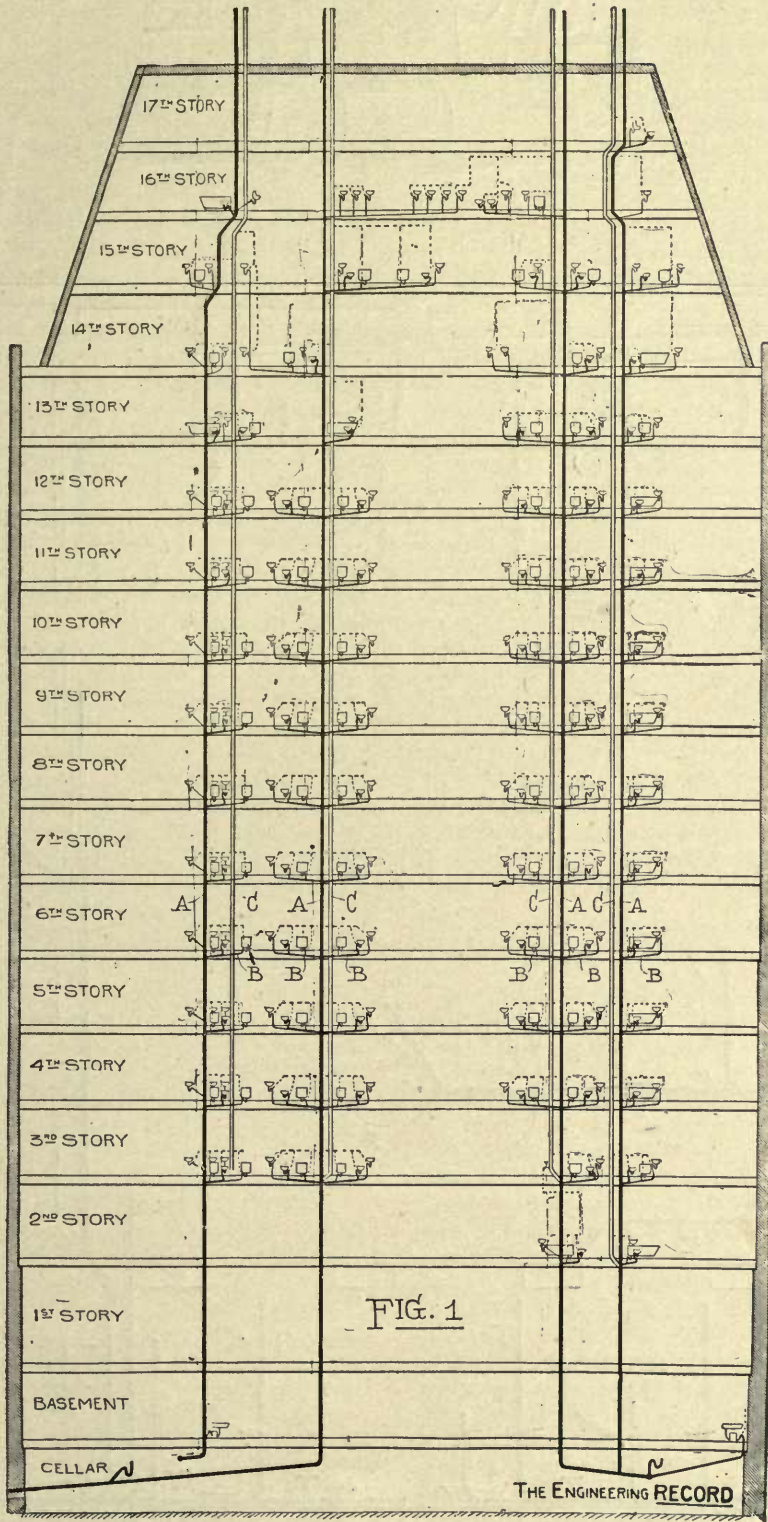 17TH STORY
16TH STORY
15TH STORY
14TH STORY
13TH STORY
12TH STORY
11TH STORY
10TH STORY
9TH STORY
8TH STORY
7TH STORY
A C A C C A C A
6TH STORY
B B B B B B
5TH STORY
4TH STORY
3RD STORY
2ND STORY
1ST STORY
FIG. 1
BASEMENT
CELLAR
THE ENGINEERING RECORD